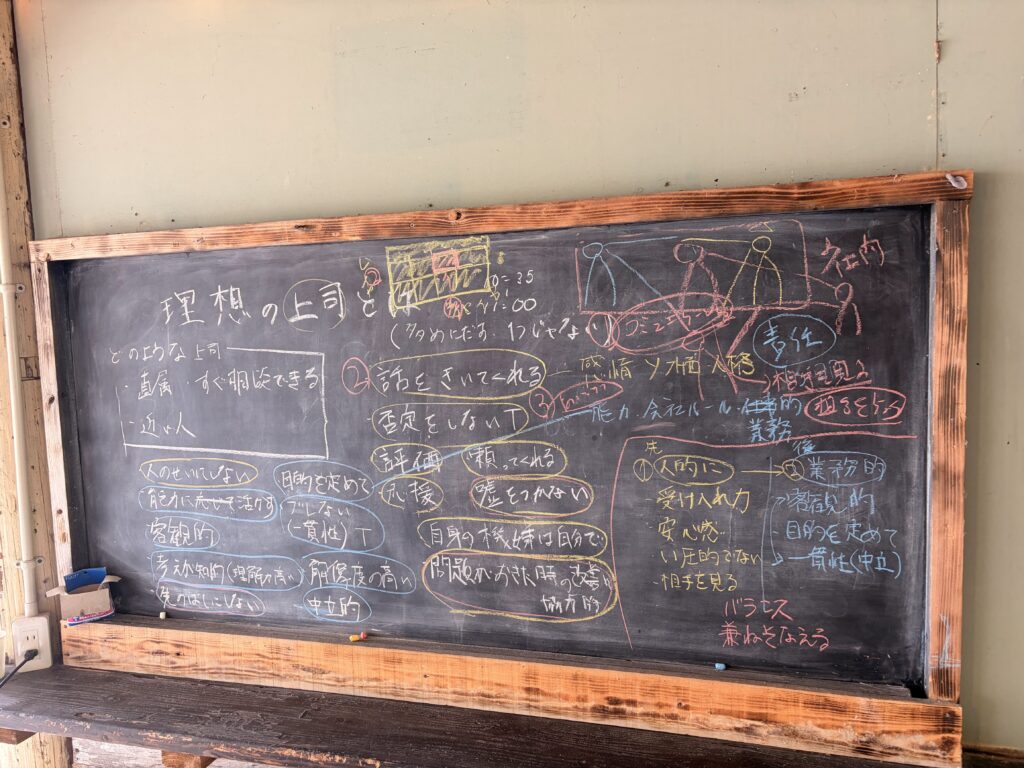 理想の上司とは
:35
:00
(多めにだす 1つじゃない)
社内
どのような上司
・直属 ・すぐ相談できる
・近い人
② 話をきいてくれる
感情 人格
責任
相手を見る
③
能力 会社ルール
業務
否定をしない
評価
頼ってくれる
応援
嘘をつかない
自身の機嫌は自分で
問題がおきた時の改善
協力的
人のせいにしない
目的を定めて
ブレない
(一貫性)
客観的
考えが知的(理解力高い)
解像度の高い
中立的
先
① 人的に
・受け入れ力
・安心感
・い圧的でない
・相手を見る
後
② 業務的
客観的
目的を定めて
一貫性(中立)
バランス
兼ねそなえる